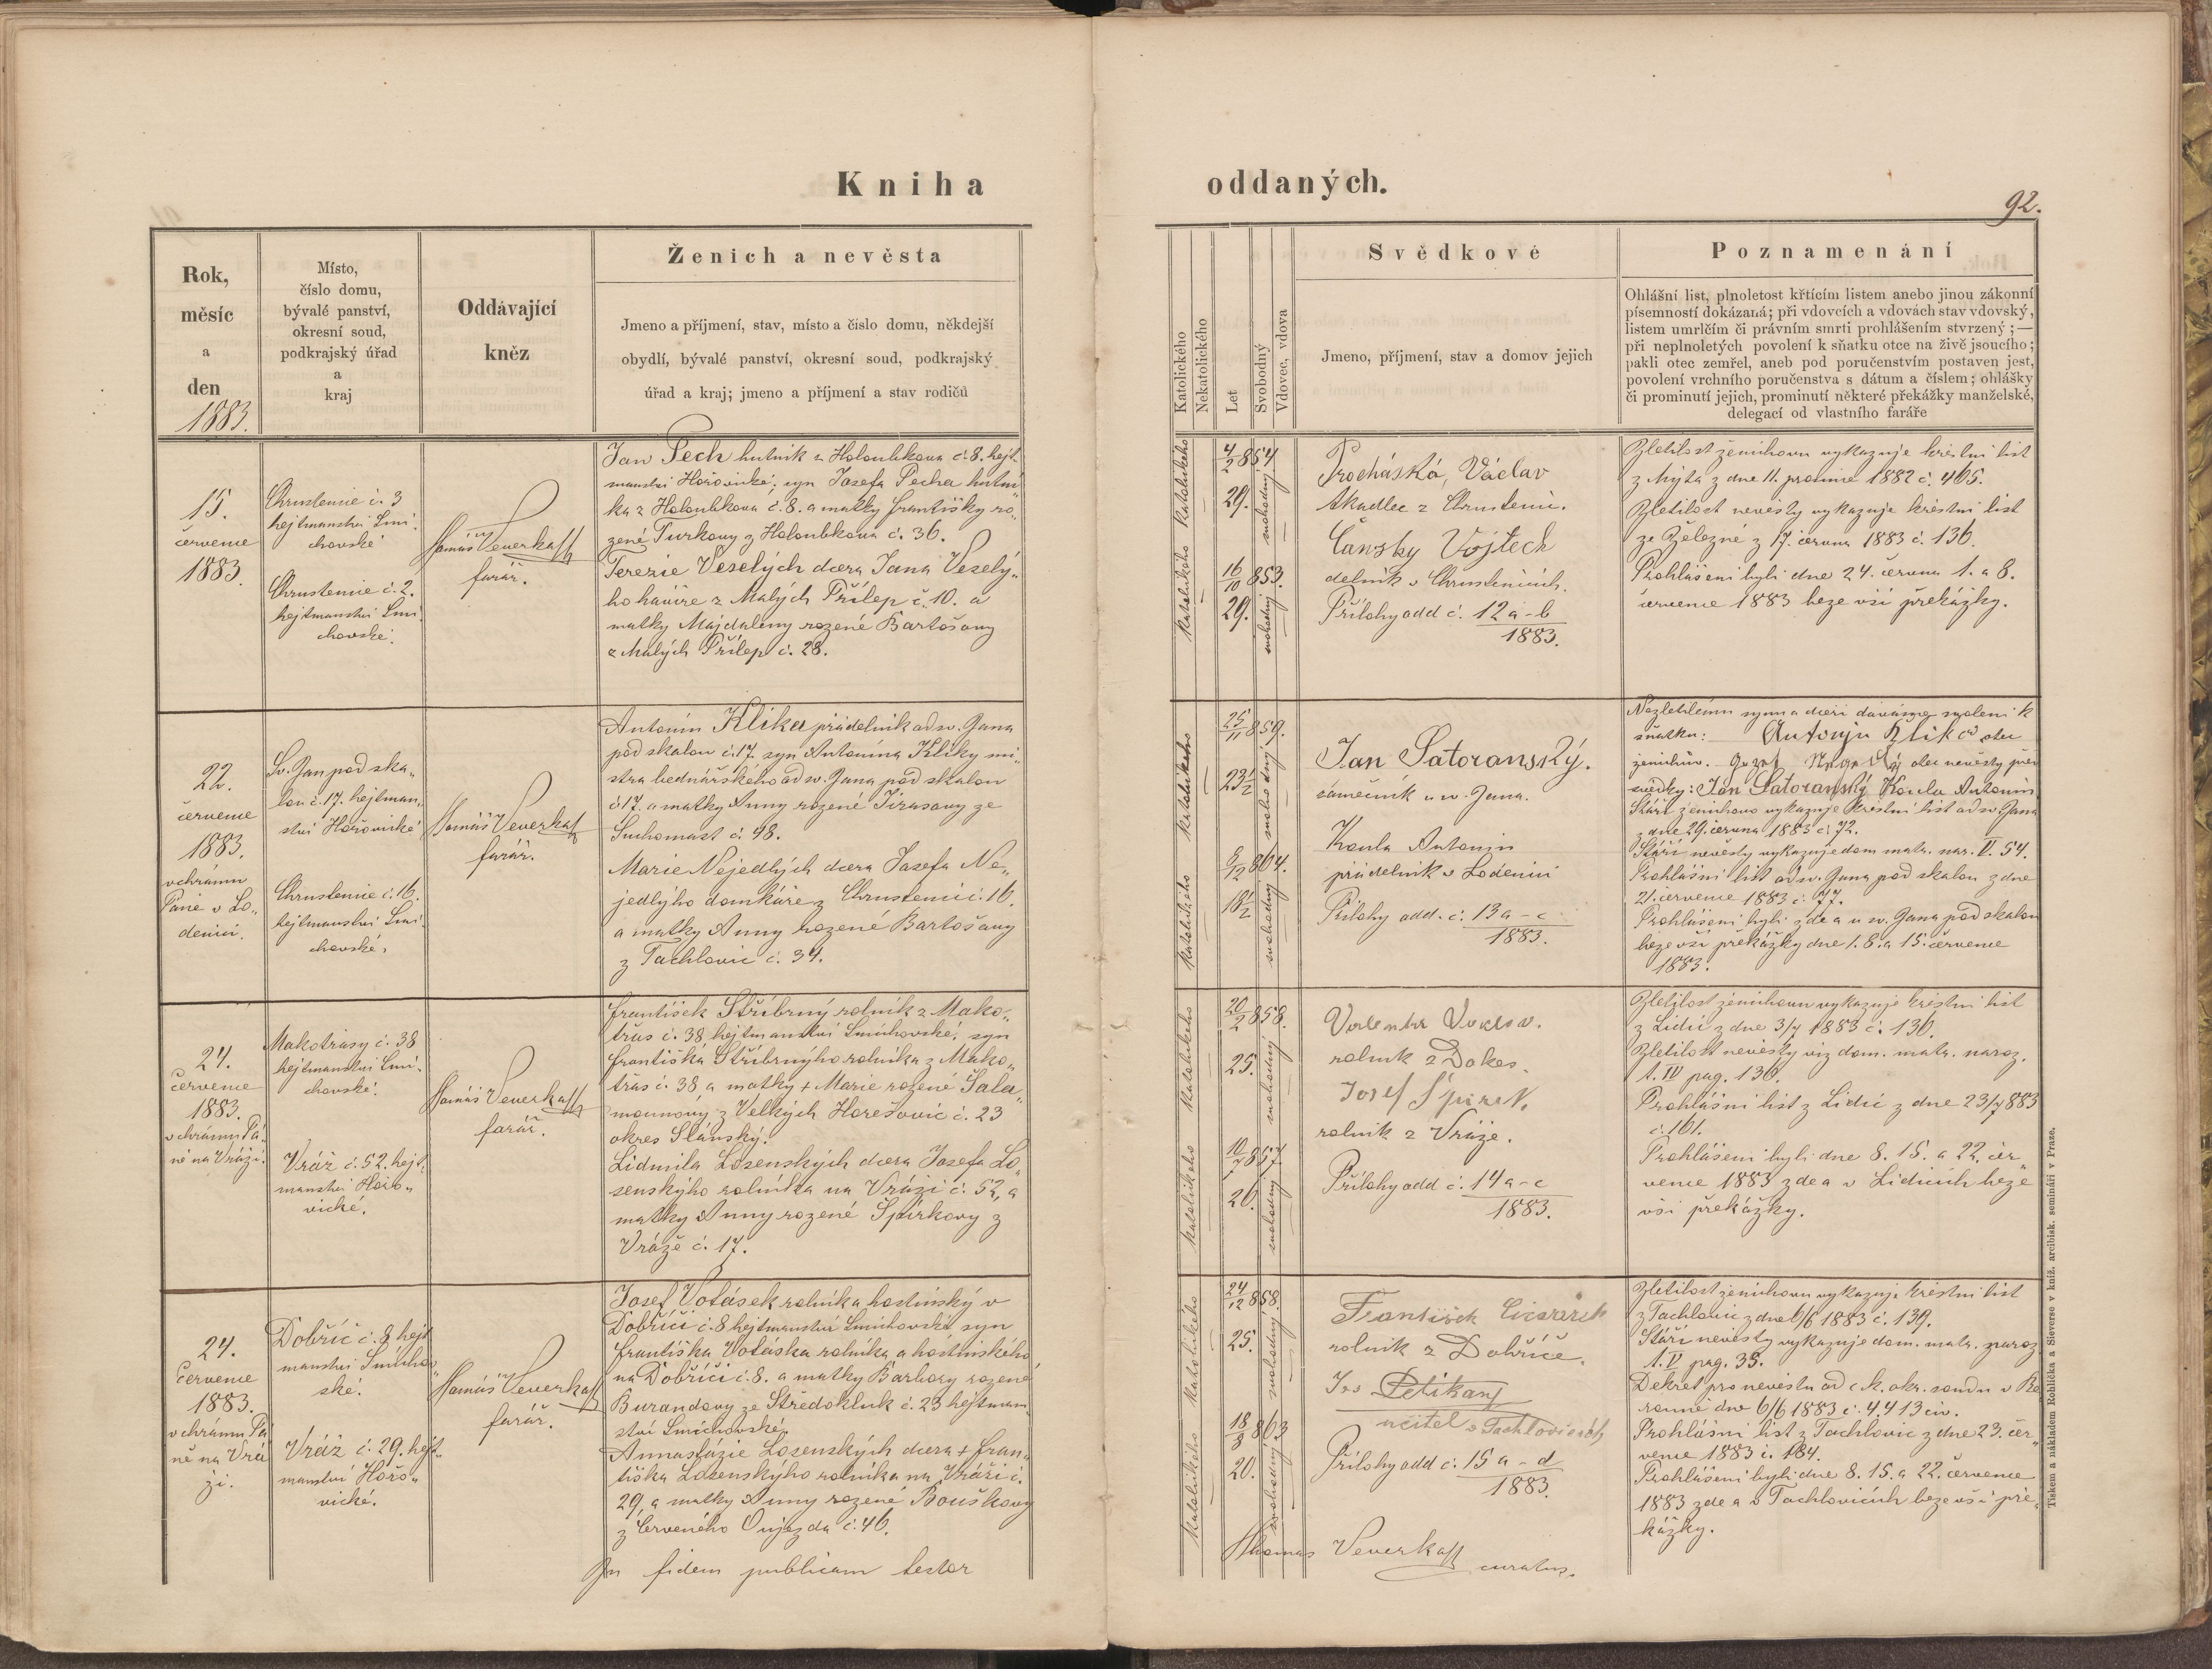 Kniha oddaných.
92.
Rok,
měsíc
a
den
1883.
Místo,
číslo domu,
bývalé panství,
okresní soud,
podkrajský úřad
a
kraj
Oddávající
kněz
Ženich a nevěsta
Jmeno a příjmení, stav, místo a číslo domu, někdejší
obydlí, bývalé panství, okresní soud, podkrajský
úřad a kraj; jmeno a příjmení a stav rodičů
Katolického
Nekatolického
Let
Svobodný
Vdovec, vdova
Svědkové
Jmeno, příjmení, stav a domov jejich
Poznamenání
Ohlášní list, plnoletost křtícím listem anebo jinou zákonní
písemností dokázaná; při vdovcích a vdovách stav vdovský,
listem umrlčím či právním smrti prohlášením stvrzený; —
při neplnoletých povolení k sňatku otce na živě jsoucího;
pakli otec zemřel, aneb pod poručenstvím postaven jest,
povolení vrchního poručenstva s dátum a číslem; ohlášky
či prominutí jejich, prominutí některé překážky manželské,
delegací od vlastního faráře
15.
července
1883.
Chrustenice č. 3
hejtmanství Smí
chovské
Chrustenice č. 2.
hejtmanství Smí
chovské.
Tomáš Veverka
farář.
Jan Pech hutník z Holoubkova č. 8. hejt
manství Hořovické, syn Josefa Pecha hutní
ka z Holoubkova č. 8. a matky Františky ro„
zené Turkovy z Holoubkova č. 36.
Terezie Veselých dcera Jana Veselý„
ho havíře z Malých Přílep č. 10. a
matky Majdaleny rozené Bartošovy
z Malých Přílep č. 28.
katolického
4/2 854.
29.
svobodný
katolického
16/10 853.
29.
svobodný
Procháska, Václav
tkadlec z Chrustenic.
Čanský Vojtěch
dělník v Chrustenicích.
Přílohy add č. 12 a-b
1883.
Zletilost ženichovu vykazuje křestní list
z Mýta z dne 11. prosince 1882 č. 465.
Zletilost nevěsty vykazuje křestní list
ze Železné z 17. června 1883 č. 136.
Prohlášeni byli dne 24. června 1. a 8.
července 1883 beze vší překážky.
22.
července
1883.
v chrámu
Páně v Lo„
děnici.
Sv. Jan pod ska„
lou č. 17. hejtman„
ství Hořovické
Chrustenice č. 16.
hejtmanství Smí
chovské,
Tomáš Veverka
farář.
Antonín Klika přádelník od sv. Jana
pod skalou č. 17. syn Antonína Kliky mi„
stra bednářského od sv. Jana pod skalou
č 17. a matky Anny rozené Jirasovy ze
Suchomast č. 98.
Marie Nejedlých dcera Josefa Ne„
jedlýho domkáře z Chrustenic č. 16.
a matky Anny rozené Bartošovy
z Tachlovic č. 34.
katolického
25/11 859.
23 1/2
svobodný
katolického
864.
18 1/2
svobodný
Jan Satoranský.
zámečník u sv. Jana.
Koula Antonin
přádelník v Loděnici
Přílohy add. č. 13 a-c
1883.
Nezletilému synu a dceři dáváme svolení k
sňatku: Antonin Klika otec
ženichův. otec nevěsty
svědky: Jan Satoranský Koula Antonin
Stáří ženichovo vykazuje křestní list od sv. Jana
z dne 29. června 1883 č. 72.
Stáří nevěsty vykazuje dom. matr. nar. V. 54.
Prohlášní list od sv. Jana pod skalou z dne
21. července 1883 č. 77.
Prohlášeni byli zde a u sv. Jana pod skalou
beze vší překážky dne 1. 8. a 15. července
1883.
24.
července
1883.
v chrámu Pá„
ně na Vráži.
Makotřasy č. 38
hejtmanství Smí„
chovské.
Vráž č. 52. hejt„
manství Hořo„
vické.
Tomáš Veverka
farář.
František Stříbrný rolník z Mako„
třas č. 38 hejtmanství Smíchovské, syn
Františka Stříbrnýho rolníka z Mako„
třas č. 38 a matky + Marie rozené Šala„
mounovy z Velkých Horešovic č. 23
okres Slánský.
Lidmila Losenských dcera Josefa Lo„
senskýho rolníka na Vráži č. 52, a
matky Anny rozené Špirkovy z
Vráže č. 17.
katolického
20/2 858.
25.
svobodný
katolického
10/7 857.
26.
svobodný
Valenta
rolník z Dokes.
Josef
rolník z Vráže.
Přílohy add č. 14 a-c
1883.
Zletilost ženichovu vykazuje křestní list
z Lidic z dne 3/7 1883 č. 136.
Zletilost nevěsty viz dom. matr. naroz.
t. IV pag. 136.
Prohlášní list z Lidic z dne 23/7 883
č. 161.
Prohlášeni byli dne 8. 15. a 22. čer„
vence 1883 zde a v Lidicích beze
vší překážky.
24.
července
1883.
v chrámu Pá
ně na Vrá
ži.
Dobříč č. 8 hejt
manství Smícho„
ské.
Vráž č. 29. hejt„
manství Hořo„
vické.
Tomáš Veverka
farář.
Josef Votásek rolník a hostinský v
Dobříči č. 8 hejtmanství Smíchovské syn
Františka Votáska rolníka a hostinského
na Dobříči č. 8. a matky Barbory rozené
Burandovy ze Středokluk č. 23 hejtman„
ství Smíchovské.
Annastázie Losenských dcera + Fran„
tiška Losenskýho rolníka na Vráži č.
29, a matky Anny rozené Bouškovy
z Červeného Oujezda č. 46.
katolického
24/12 858.
25.
svobodný
katolického
18/8 863
20.
svobodný
František
rolník z Dobříče.
Jos Pelikan
učitel v Tachlovicích
Přílohy add č. 15 a-d
1883.
Zletilost ženichovu vykazuje křestní list
z Tachlovic z dne 6/6 1883 č. 139.
Stáří nevěsty vykazuje dom. matr. naroz.
t. V pag. 35.
Dekret pro nevěstu od c. k. okr. soudu v Be
rouně dne 6/6 1883 č. 4.413 civ.
Prohlášní list z Tachlovic z dne 23. čer„
vence 1883 č. 184.
Prohlášeni byli dne 8. 15. a 22. července
1883 zde a v Tachlovicích beze vší pře„
kážky.
In fidem publicam testor
Thomas Veverka
curatus.
Tiskem a nákladem Rohlíčka a Sieverse v kniž. arcibisk. semináři v Praze.